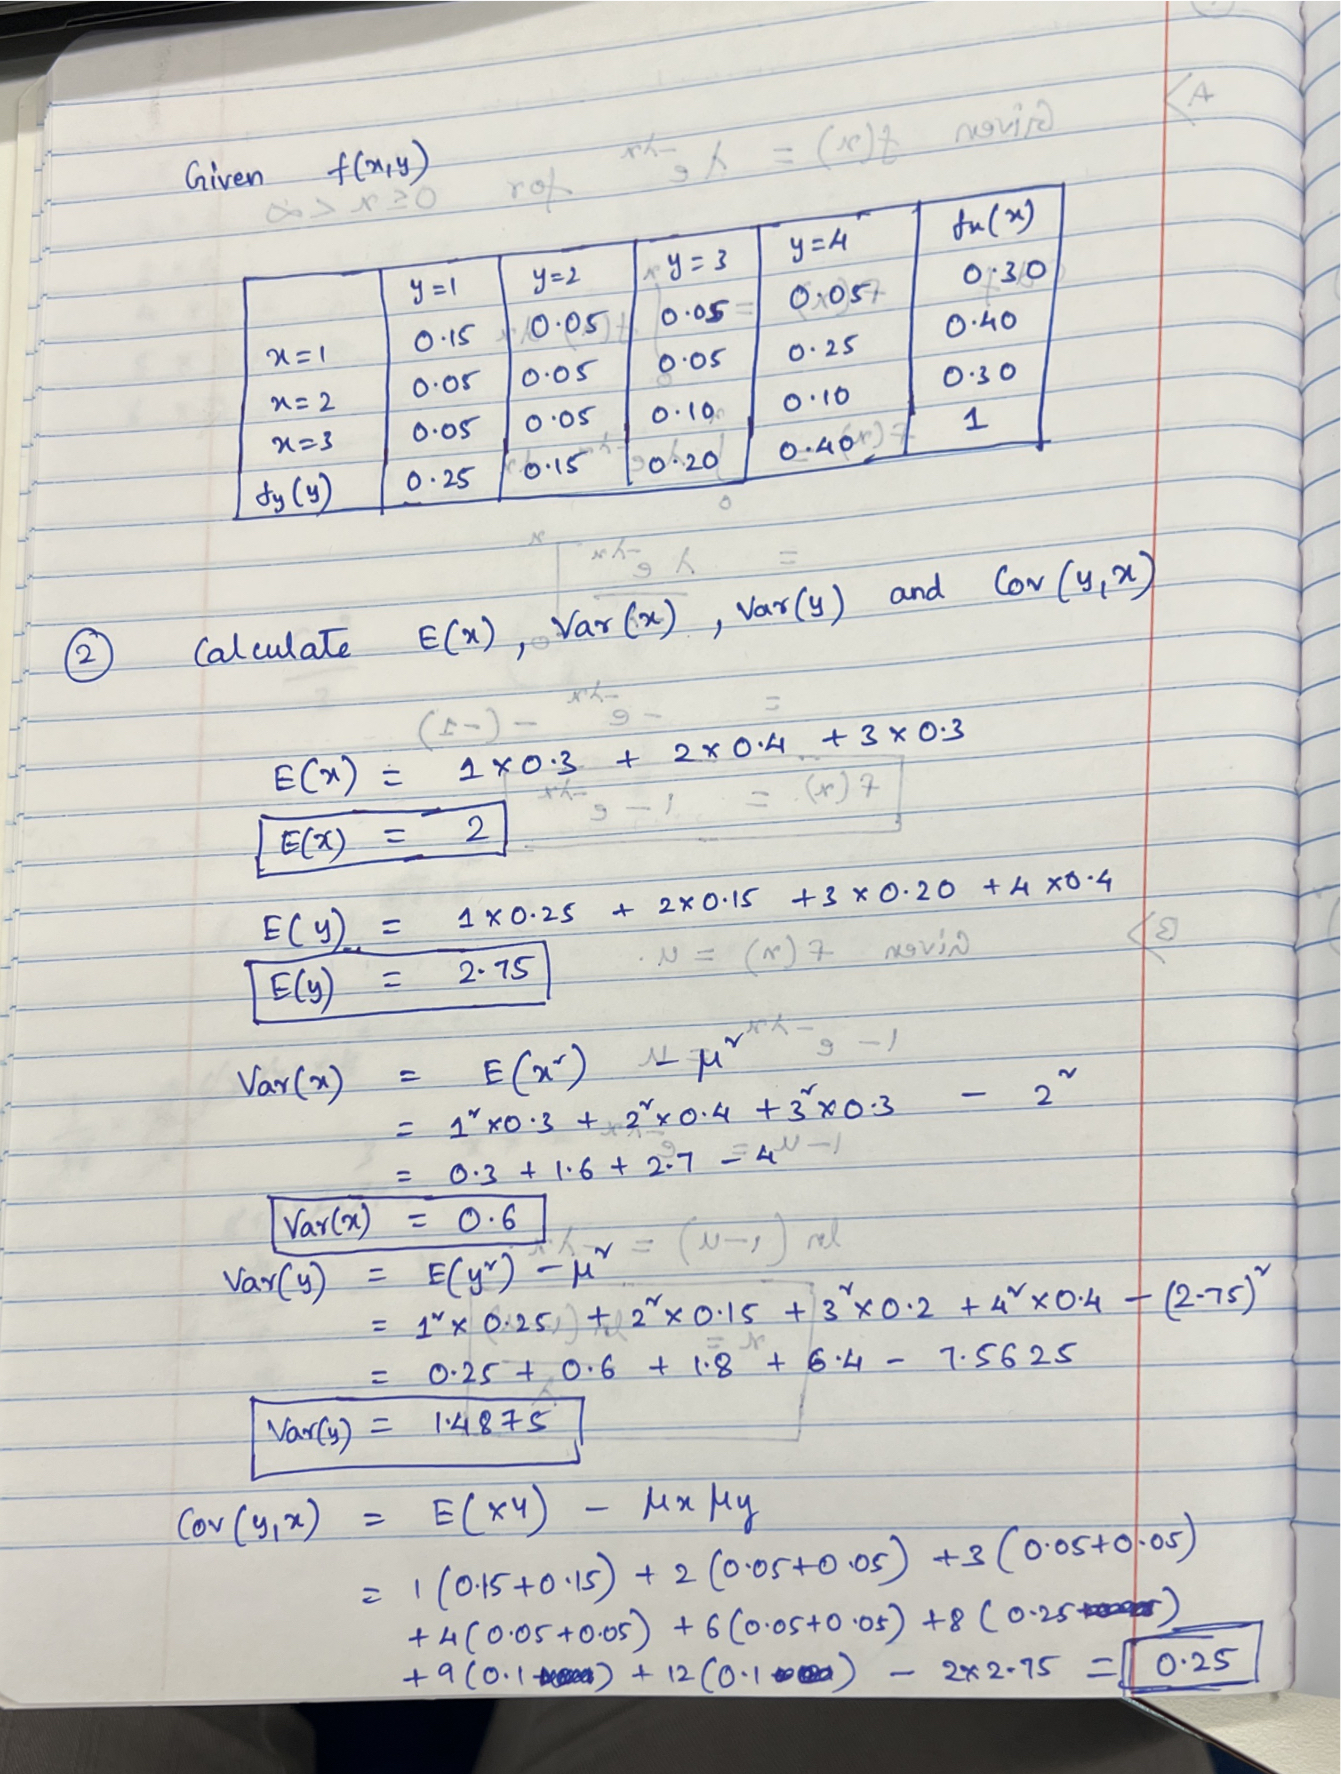 Given f(x,y)
y=1 y=2 y=3 y=4 fx(x)
x=1 0.15 0.05 0.05 0.05 0.30
x=2 0.05 0.05 0.05 0.25 0.40
x=3 0.05 0.05 0.10 0.10 0.30
fy(y) 0.25 0.15 0.20 0.40 1
② Calculate E(x), Var(x), Var(y) and Cov(y,x)
E(x) = 1×0.3 + 2×0.4 + 3×0.3
E(x) = 2
E(y) = 1×0.25 + 2×0.15 + 3×0.20 + 4×0.4
E(y) = 2.75
Var(x) = E(x²) - μ²
= 1²×0.3 + 2²×0.4 + 3²×0.3 - 2²
= 0.3 + 1.6 + 2.7 - 4
Var(x) = 0.6
Var(y) = E(y²) - μ²
= 1²×0.25 + 2²×0.15 + 3²×0.2 + 4²×0.4 - (2.75)²
= 0.25 + 0.6 + 1.8 + 6.4 - 7.5625
Var(y) = 1.4875
Cov(y,x) = E(xy) - μx μy
= 1(0.15+0.15) + 2(0.05+0.05) + 3(0.05+0.05)
+4(0.05+0.05) + 6(0.05+0.05) + 8(0.25)
+9(0.1) + 12(0.1) - 2×2.75 = 0.25